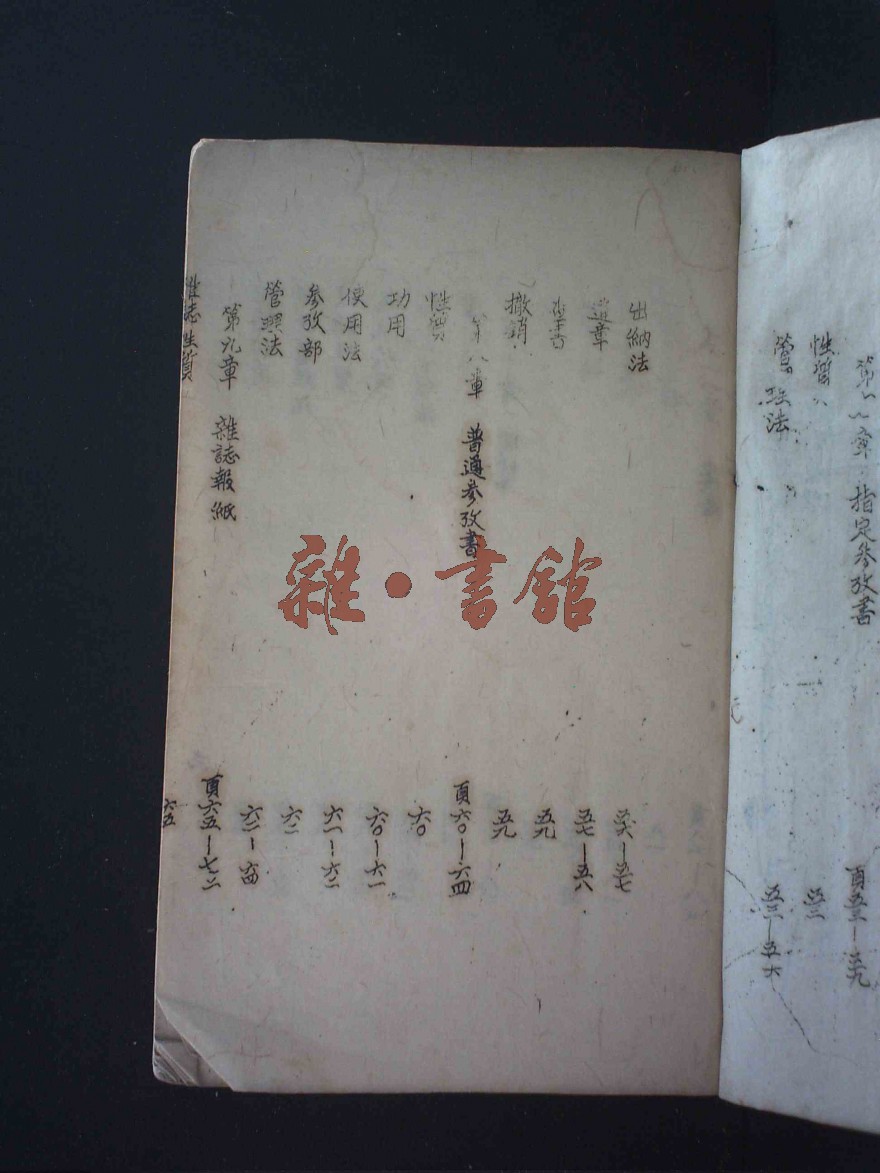 章 指定參攷書 頁五三—五九
性質 五三
管理法 五三—五六
出納法 五六—五七
違章 五七—五八
書 五九
撤銷 五九
第八章 普通參攷書 頁六〇—六四
性質 六〇
功用 六〇—六一
使用法 六一—六二
參攷部 六二
管理法 六二—六四
第九章 雜誌報紙 頁六五—七二
雜誌性質 六五
雜·書館